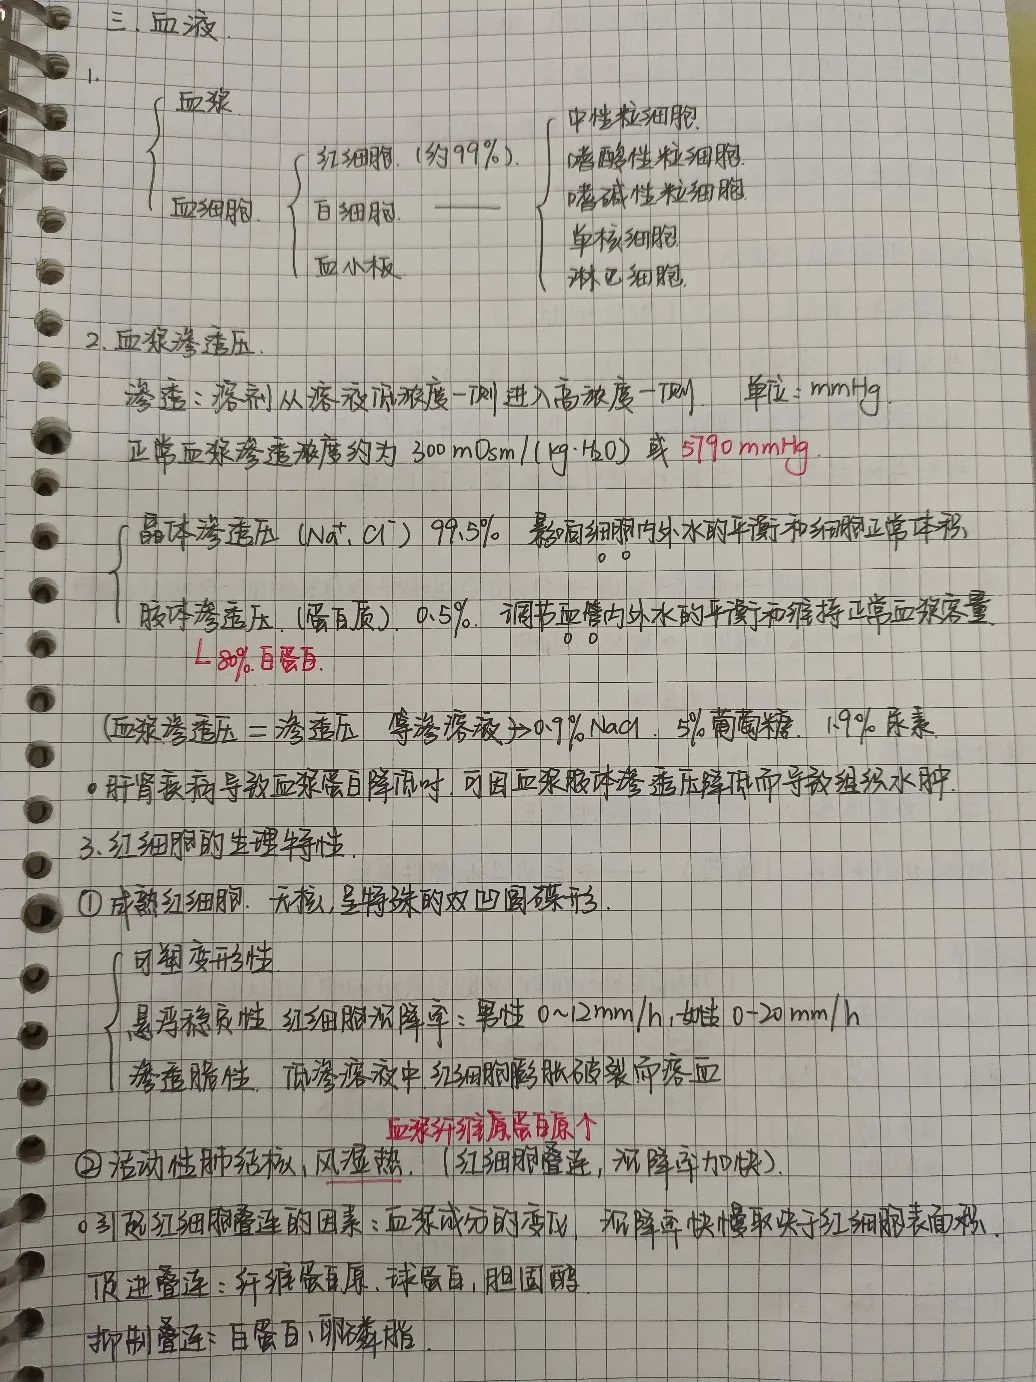 三. 血液.
1.
血浆.
血细胞.
红细胞. (约99%).
白细胞.
血小板
中性粒细胞.
嗜酸性粒细胞.
嗜碱性粒细胞
单核细胞
淋巴细胞.
2. 血浆渗透压.
渗透: 溶剂从溶液低浓度一侧进入高浓度一侧 单位: mmHg.
正常血浆渗透浓度约为 300 mOsm/(kg·H₂O) 或 5790 mmHg.
晶体渗透压 (Na⁺. Cl⁻) 99.5% 影响细胞内外水的平衡和细胞正常体积
胶体渗透压. (蛋白质). 0.5%. 调节血管内外水的平衡和维持正常血浆容量.
80%. 白蛋白.
(血浆渗透压 = 渗透压 等渗溶液)→0.9% NaCl. 5%葡萄糖. 1.9% 尿素.
• 肝肾疾病导致血浆蛋白降低时, 可因血浆胶体渗透压降低而导致组织水肿.
3. 红细胞的生理特性.
① 成熟红细胞. 无核, 呈特殊的双凹圆碟形.
可塑变形性
悬浮稳定性 红细胞沉降率: 男性 0~12mm/h, 女性 0-20mm/h
渗透脆性. 低渗溶液中红细胞膨胀破裂而溶血
血浆纤维原蛋白原个
② 活动性肺结核, 风湿热. (红细胞叠连, 沉降率加快).
引起红细胞叠连的因素: 血浆成分的变化, 沉降率快慢取决于红细胞表面积.
促进叠连: 纤维蛋白原、球蛋白, 胆固醇
抑制叠连: 白蛋白、卵磷脂.